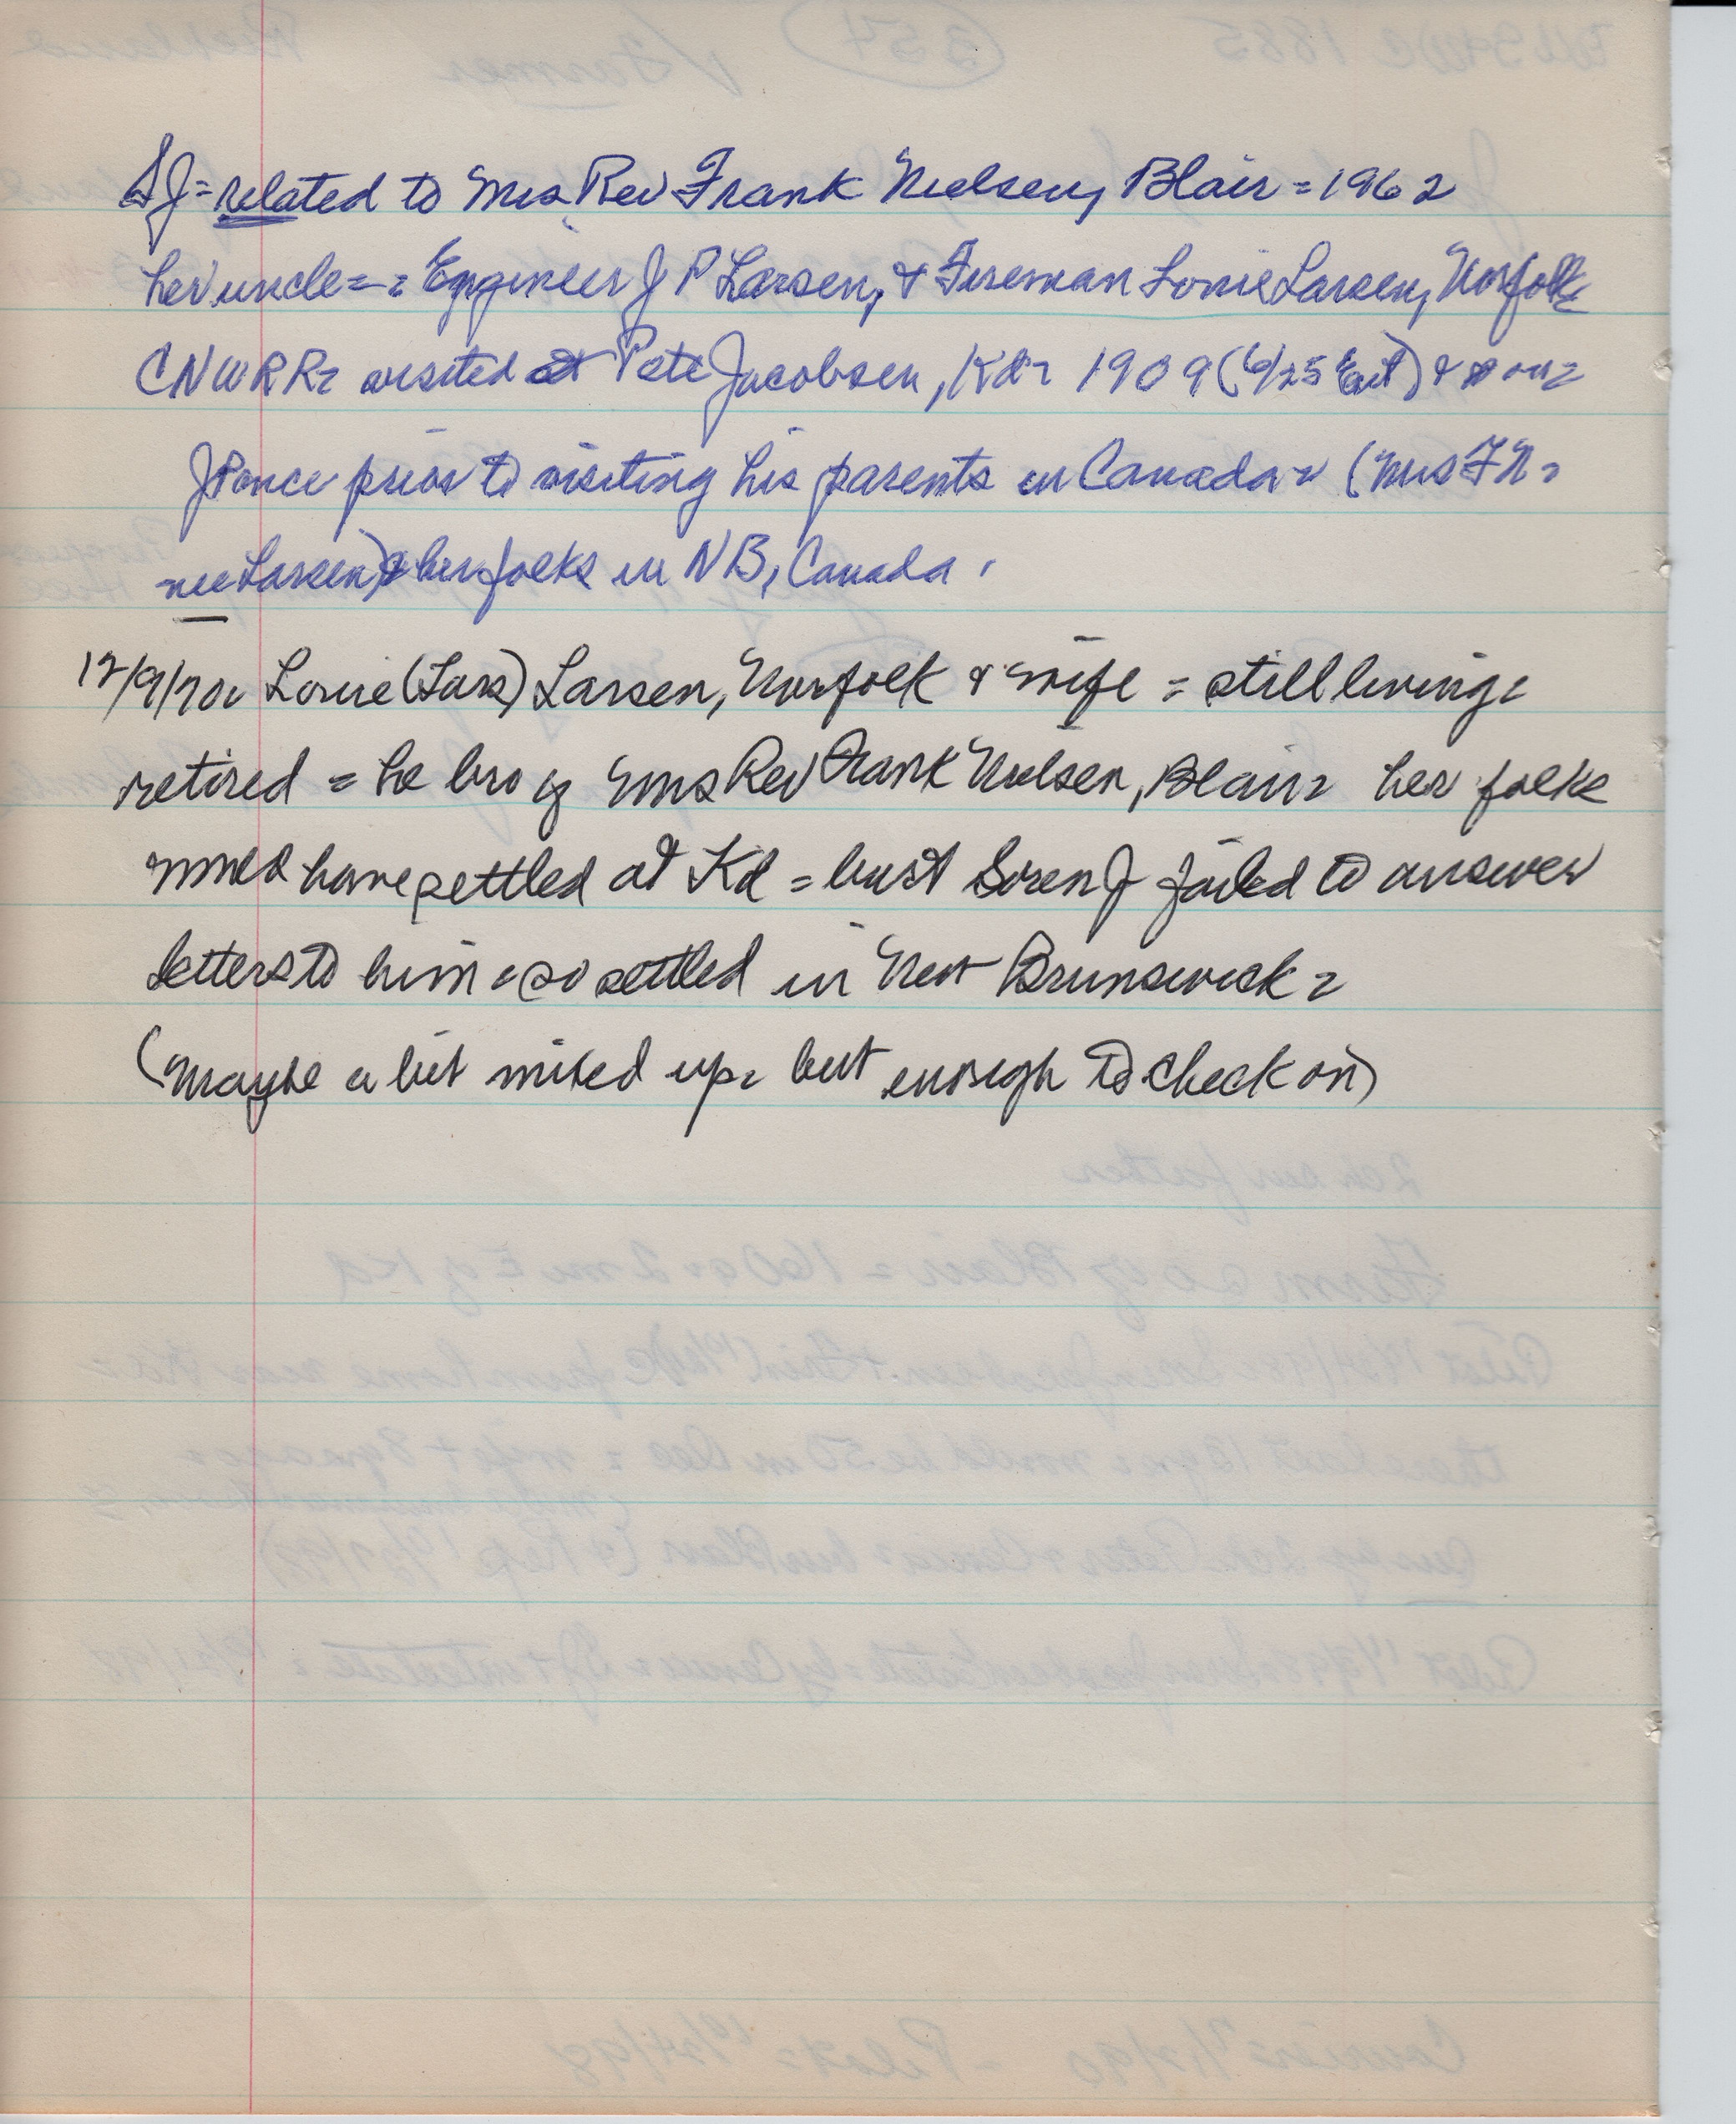 SJ = related to Mrs Rev Frank Nielsen, Blair = 1962
her uncle = = Engineer J P Larsen, & Fireman Louie Larsen, Norfolk
CNWRR = visited at Pete Jacobsen, Kd = 1909 (6/25 Ent) & on =
JP once prior to visiting his parents in Canada = (Mrs FN =
nee Larsen) & her folks in NB, Canada.
12/9/70 = Louie (Lars) Larsen, Norfolk & wife = still living =
retired = he bro of Mrs Rev Frank Nielsen, Blair = her folks
would have settled at Kd = but Soren J failed to answer
letters to him = so settled in New Brunswick =
(maybe a bit mixed up = but enough to check on)